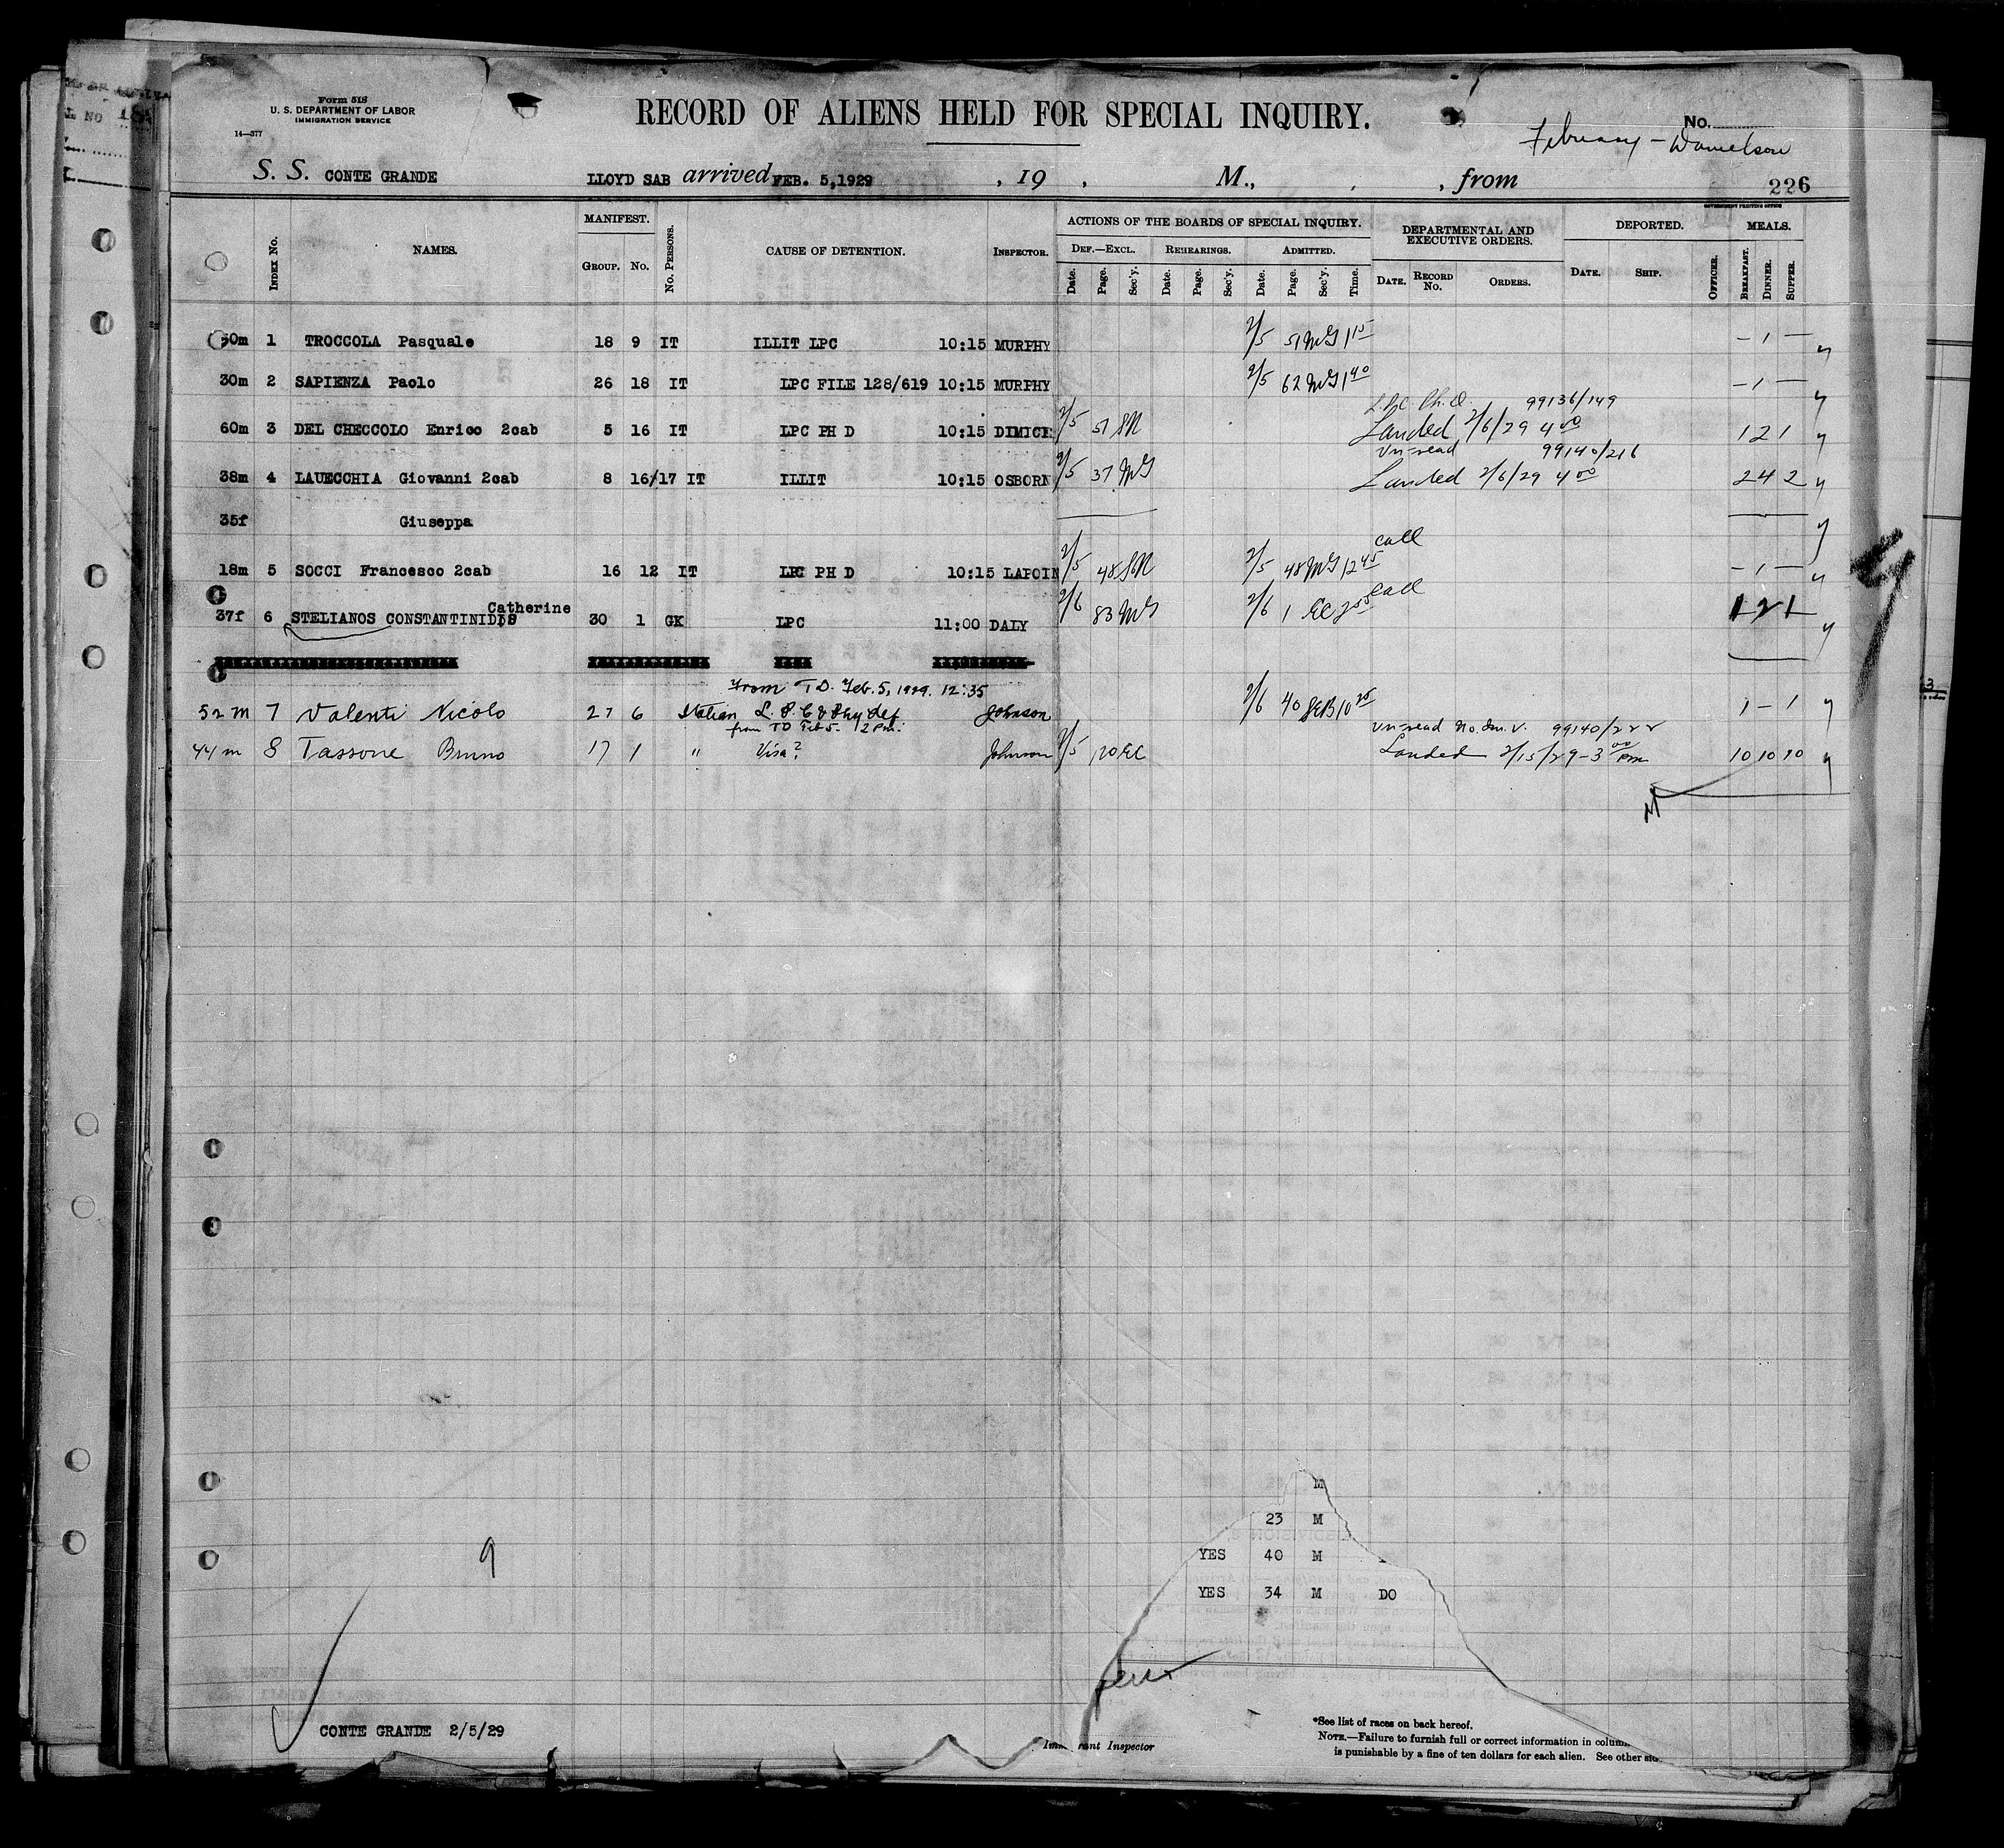 Form 518
U. S. DEPARTMENT OF LABOR
IMMIGRATION SERVICE
14—377
RECORD OF ALIENS HELD FOR SPECIAL INQUIRY.
No.
February - Danielson
S. S. CONTE GRANDE LLOYD SAB arrived FEB. 5,1929 , 19 , M., , , from
226
GOVERNMENT PRINTING OFFICE
Index No. NAMES. MANIFEST. Group. No. No. Persons. CAUSE OF DETENTION. Inspector.
ACTIONS OF THE BOARDS OF SPECIAL INQUIRY. DEPARTMENTAL AND EXECUTIVE ORDERS. DEPORTED. MEALS.
Def.—Excl. Rehearings. Admitted.
Date. Page. Sec'y. Date. Page. Sec'y. Date. Page. Sec'y. Time. Date. Record No. Orders. Date. Ship. Officer. Breakfast. Dinner. Supper.
50m 1 TROCCOLA Pasquale 18 9 IT ILLIT LPC 10:15 MURPHY 2/5 51 MG 1 15 – 1 –
30m 2 SAPIENZA Paolo 26 18 IT LPC FILE 128/619 10:15 MURPHY 2/5 62 MG 1 40 – 1 –
99136/149
60m 3 DEL CHECCOLO Enrico 2cab 5 16 IT LPC PH D 10:15 DIMICK 2/5 51 SM Landed 2/6/29 4 00 1 2 1
Un-read 99140/216
38m 4 LAUECCHIA Giovanni 2cab 8 16/17 IT ILLIT 10:15 OSBORN 2/5 37 MG Landed 2/6/29 4 00 2 4 2
35f Giuseppa
call
18m 5 SOCCI Francesco 2cab 16 12 IT LPC PH D 10:15 LAPOIN 2/5 48 SM 2/5 48 MG 12 45 – 1 –
call
Catherine
37f 6 STELIANOS CONSTANTINIDIS 30 1 GK LPC 11:00 DALY 2/6 83 MG 2/6 1 EC 2 55 1 2 1
From T D. Feb. 5, 1929. 12:35
52 m 7 Valenti Nicolo 27 6 Italian L. P. C & Phy def Johnson 2/6 40 SEB 10 25 1 – 1
from TD Feb 5- 12 Pm. Un-read No. Im. V. 99140/222
44 m 8 Tassone Bruno 17 1 " Visa? Johnson 2/5 120 EC Landed 2/15/29 - 3 00 Pm 10 10 10
M
23 M
YES 40 M
9
YES 34 M DO
CONTE GRANDE 2/5/29
*See list of races on back hereof.
Note.—Failure to furnish full or correct information in
is punishable by a fine of ten dollars for each alien. See other
Inspector